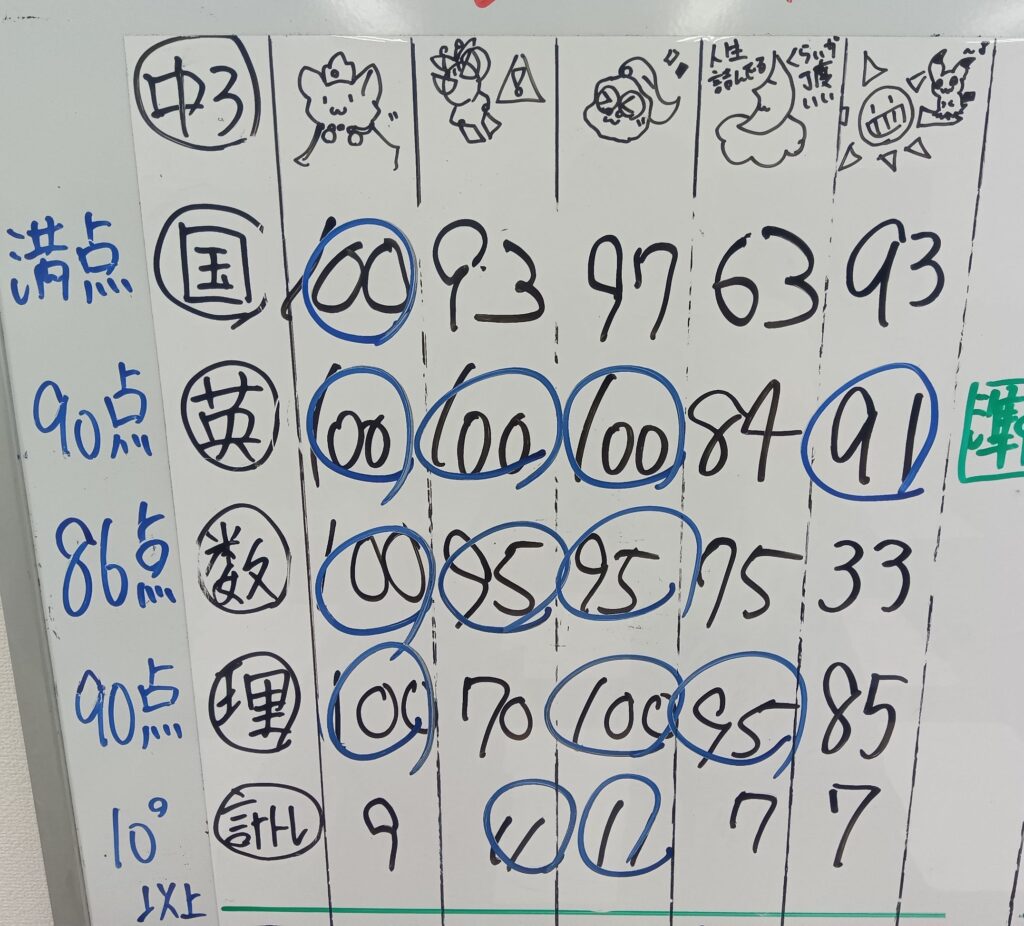 中3
人生
詰んでる
くらいが
丁度
いい
満点 国 100 93 97 63 93
90点 英 100 100 100 84 91
86点 数 100 95 95 75 33
90点 理 100 70 100 95 85
10⁹ 計トレ 9 11 11 7 7
以上
準